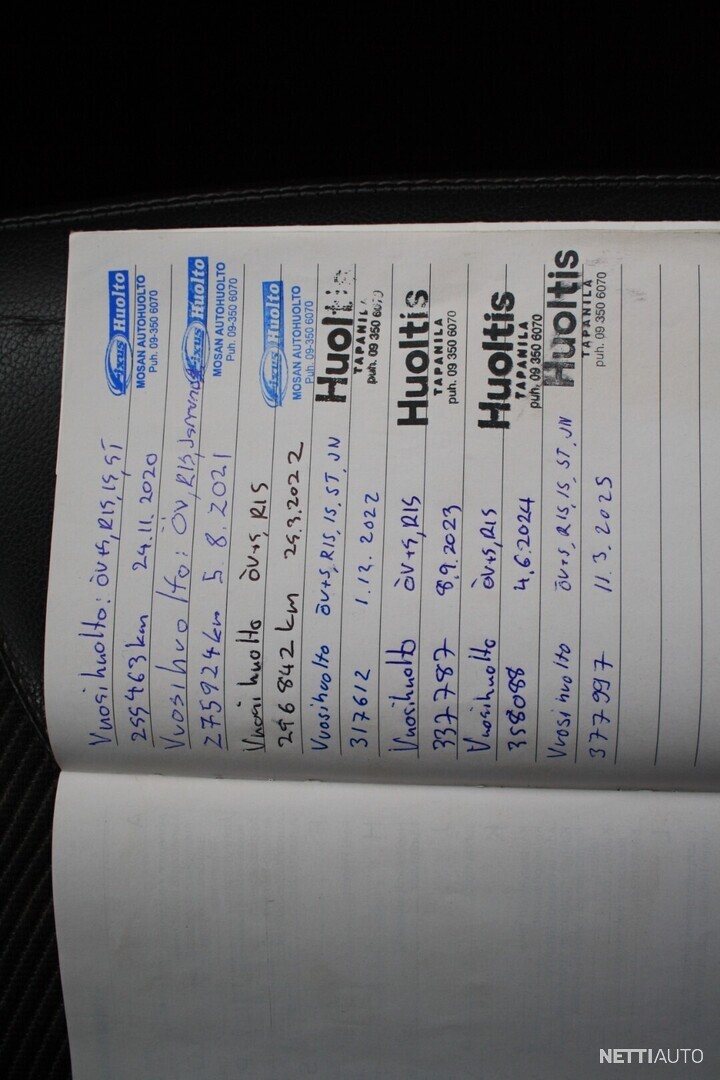 Vuosihuolto: ÖV+S, RIS, IS, ST
Fixus Huolto
255463km 24.11.2020
MOSAN AUTOHUOLTO
Puh. 09-350 6070
Vuosihuolto: ÖV, RIS,
Fixus Huolto
275924km 5.8.2021
MOSAN AUTOHUOLTO
Puh. 09-350 6070
Vuosihuolto ÖV+S, RIS
Fixus Huolto
296842km 25.3.2022
MOSAN AUTOHUOLTO
Puh. 09-350 6070
Vuosihuolto ÖV+S, RIS, IS, ST, JN
Huoltis
TAPANILA
puh. 09 350 6070
317612 1.12.2022
Vuosihuolto ÖV+S, RIS
Huoltis
TAPANILA
puh. 09 350 6070
337787 8.9.2023
Vuosihuolto ÖV+S, RIS
Huoltis
TAPANILA
puh. 09 350 6070
358088 4.6.2024
Vuosihuolto ÖV+S, RIS, IS, ST, JN
Huoltis
TAPANILA
puh. 09 350 6070
377997 11.3.2025
NETTIAUTO